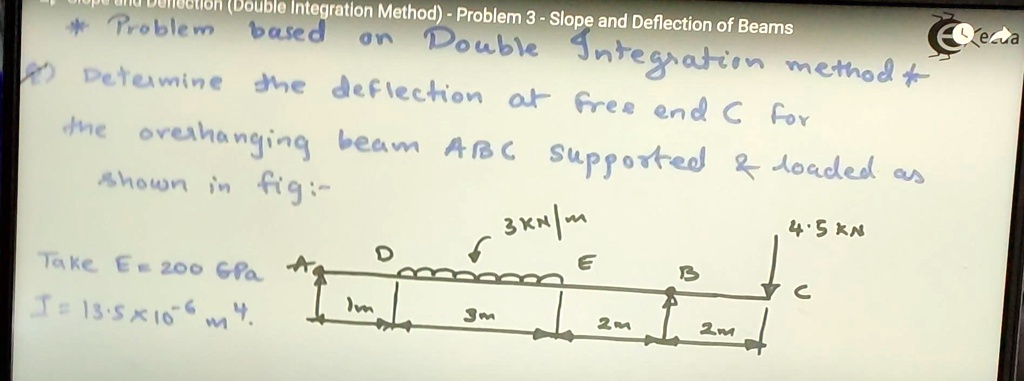 Deflection (Double Integration Method) - Problem 3 - Slope and Deflection of Beams
* Problem based on Double Integration method *
Determine the deflection at free end C for
the overhanging beam ABC supported & loaded as
shown in fig:-
3 KN/m
4.5 KN
Take E = 200 GPa
A D E B C
I = 13.5 x 10^-6 m^4.
1m 3m 2m 2m